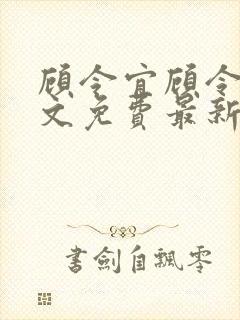 顾令宜顾令
文免费最新
书剑自飘零